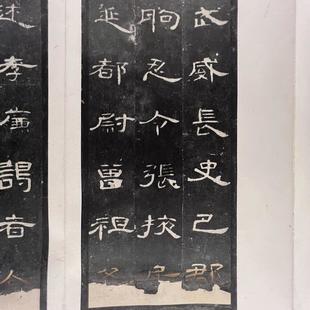 武威長史巴郡
朐忍令張掖居
延都尉曾祖父
述孝廉謁者